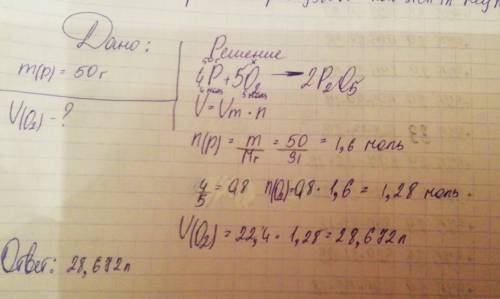 Дано:
m(p) = 50 г
V(O₂) - ?
Решение
50г x
4P + 5O₂ → 2P₂O₅
4 моль 5 моль
V = Vm · n
n(p) = m/Mr = 50/31 = 1,6 моль
4/5 = 0,8 n(O₂) = 0,8 · 1,6 = 1,28 моль.
V(O₂) = 22,4 · 1,28 = 28,672л
Ответ: 28,672л